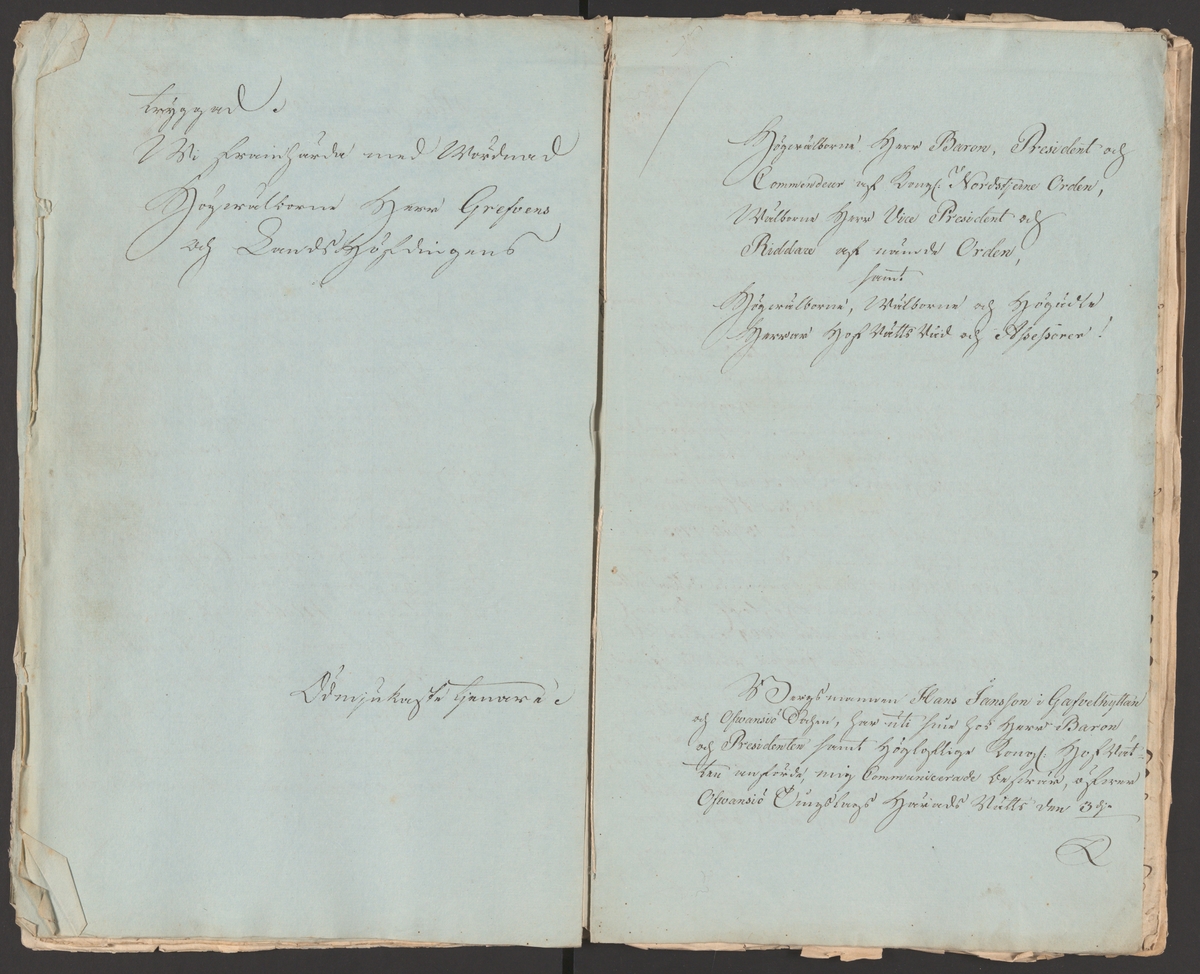 tryggad.
Wi framhärda med Wördnad
Högwälborne Herr Grefvens
och LandsHöfdingens
Ödmjukaste tjenare
Högwälborne Herr Baron, President och
Commendeur af Kongl. Nordstjerne Orden,
Wälborne Herr Vice President och
Riddare af nämde Orden,
samt
Högwälborne, Wälborne och Högädle
Herrar HofRätts Råd och Assessorer!
Bergsmannen Hans Jansson i Gafvelhyttan
och Ofvansjö Sochn, har uti sine hos Herr Baron
och Presidenten samt Högloflige Kongl. HofRät-
ten anförde, mig Communicerade besvär, öfwer
Ofvansjö Tingslags Härads Rätts den 3dje